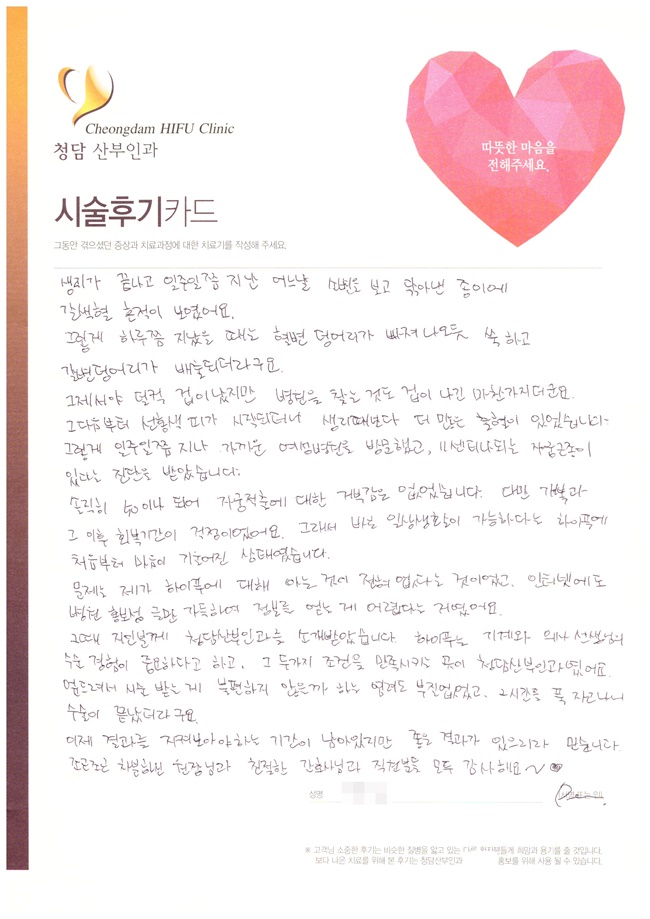 Cheongdam HIFU Clinic
청담 산부인과
따뜻한 마음을
전해주세요.
시술후기카드
그동안 겪으셨던 증상과 치료과정에 대한 치료기를 작성해 주세요.
생리가 끝나고 일주일쯤 지난 어느날 소변을 보고 닦아낸 종이에
갈색혈 흔적이 보였어요.
그렇게 하루쯤 지났을 때는 혈변 덩어리가 빠져나오듯 쑥 하고
덩어리가 배출되더라구요.
그제서야 덜컥 겁이났지만 병원을 찾는 것도 겁이 나긴 마찬가지더군요.
그다음부터 선홍색 피가 시작되더니 생리때보다 더 많은 출혈이 있었습니다.
그렇게 일주일쯤 지나 가까운 여성병원을 방문했고, 11센티나되는 자궁근종이
있다는 진단을 받았습니다.
솔직히 40이나 되어 자궁적출에 대한 거부감은 없었습니다. 다만 개복과
그 이후 회복기간이 걱정이었어요. 그래서 바로 일상생활이 가능하다는 하이푸에
처음부터 마음이 기울어진 상태였습니다.
문제는 제가 하이푸에 대해 아는 것이 전혀 없다는 것이었고, 인터넷에도
병원 홍보성 글만 가득하여 정보를 얻는 게 어렵다는 거였어요.
그때 지인분께 청담산부인과를 소개받았습니다. 하이푸는 기계와 의사 선생님의
수술 경험이 중요하다고 하고, 그 두가지 조건을 만족시키는 곳이 청담산부인과였어요.
엎드려서 시술 받는 게 불편하지 않은가 하는 염려도 부질없었고, 2시간을 푹 자고나니
수술이 끝났더라구요.
이제 결과를 지켜보아야하는 기간이 남아있지만 좋은 결과가 있으리라 믿습니다
조곤조곤 차분하신 원장님과 친절한 간호사님과 직원분들 모두 감사해요~
성명
※ 고객님 소중한 후기는 비슷한 질병을 앓고 있는 다른 환자분들께 희망과 용기를 줄 것입니다.
보다 나은 치료를 위해 본 후기는 청담산부인과 홍보를 위해 사용 될 수 있습니다.